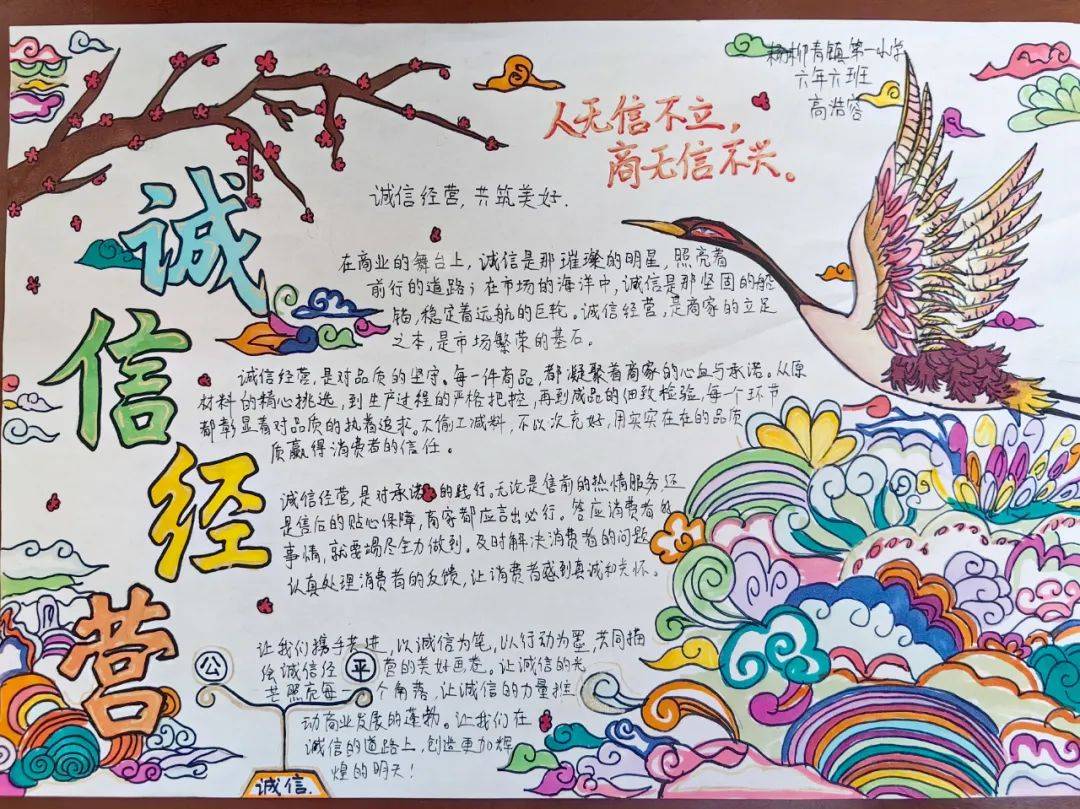 杨柳青镇第一小学
六年六班
高浩容
人无信不立，
商无信不兴。
诚信经营
诚信经营，共筑美好．
在商业的舞台上，诚信是那璀璨的明星，照亮着
前行的道路；在市场的海洋中，诚信是那坚固的船
锚，稳定着远航的巨轮。诚信经营，是商家的立足
之本，是市场繁荣的基石。
诚信经营，是对品质的坚守。每一件商品，都凝聚着商家的心血与承诺。从原
材料的精心挑选，到生产过程的严格把控，再到成品的细致检验，每个环节
都彰显着对品质的执着追求。不偷工减料，不以次充好，用实实在在的品质
质赢得消费者的信任。
诚信经营，是对承诺的践行。无论是售前的热情服务还
是售后的贴心保障，商家都应言出必行。答应消费者的
事情，就要竭尽全力做到。及时解决消费者的问题
认真处理消费者的反馈，让消费者感到真诚和关怀。
让我们携手共进，以诚信为笔，以行动为墨，共同描
绘诚信经营的美好画卷。让诚信的光
芒照亮每一个角落，让诚信的力量推
动商业发展的蓬勃。让我们在
诚信的道路上，创造更加辉
煌的明天！
公 平
诚信．